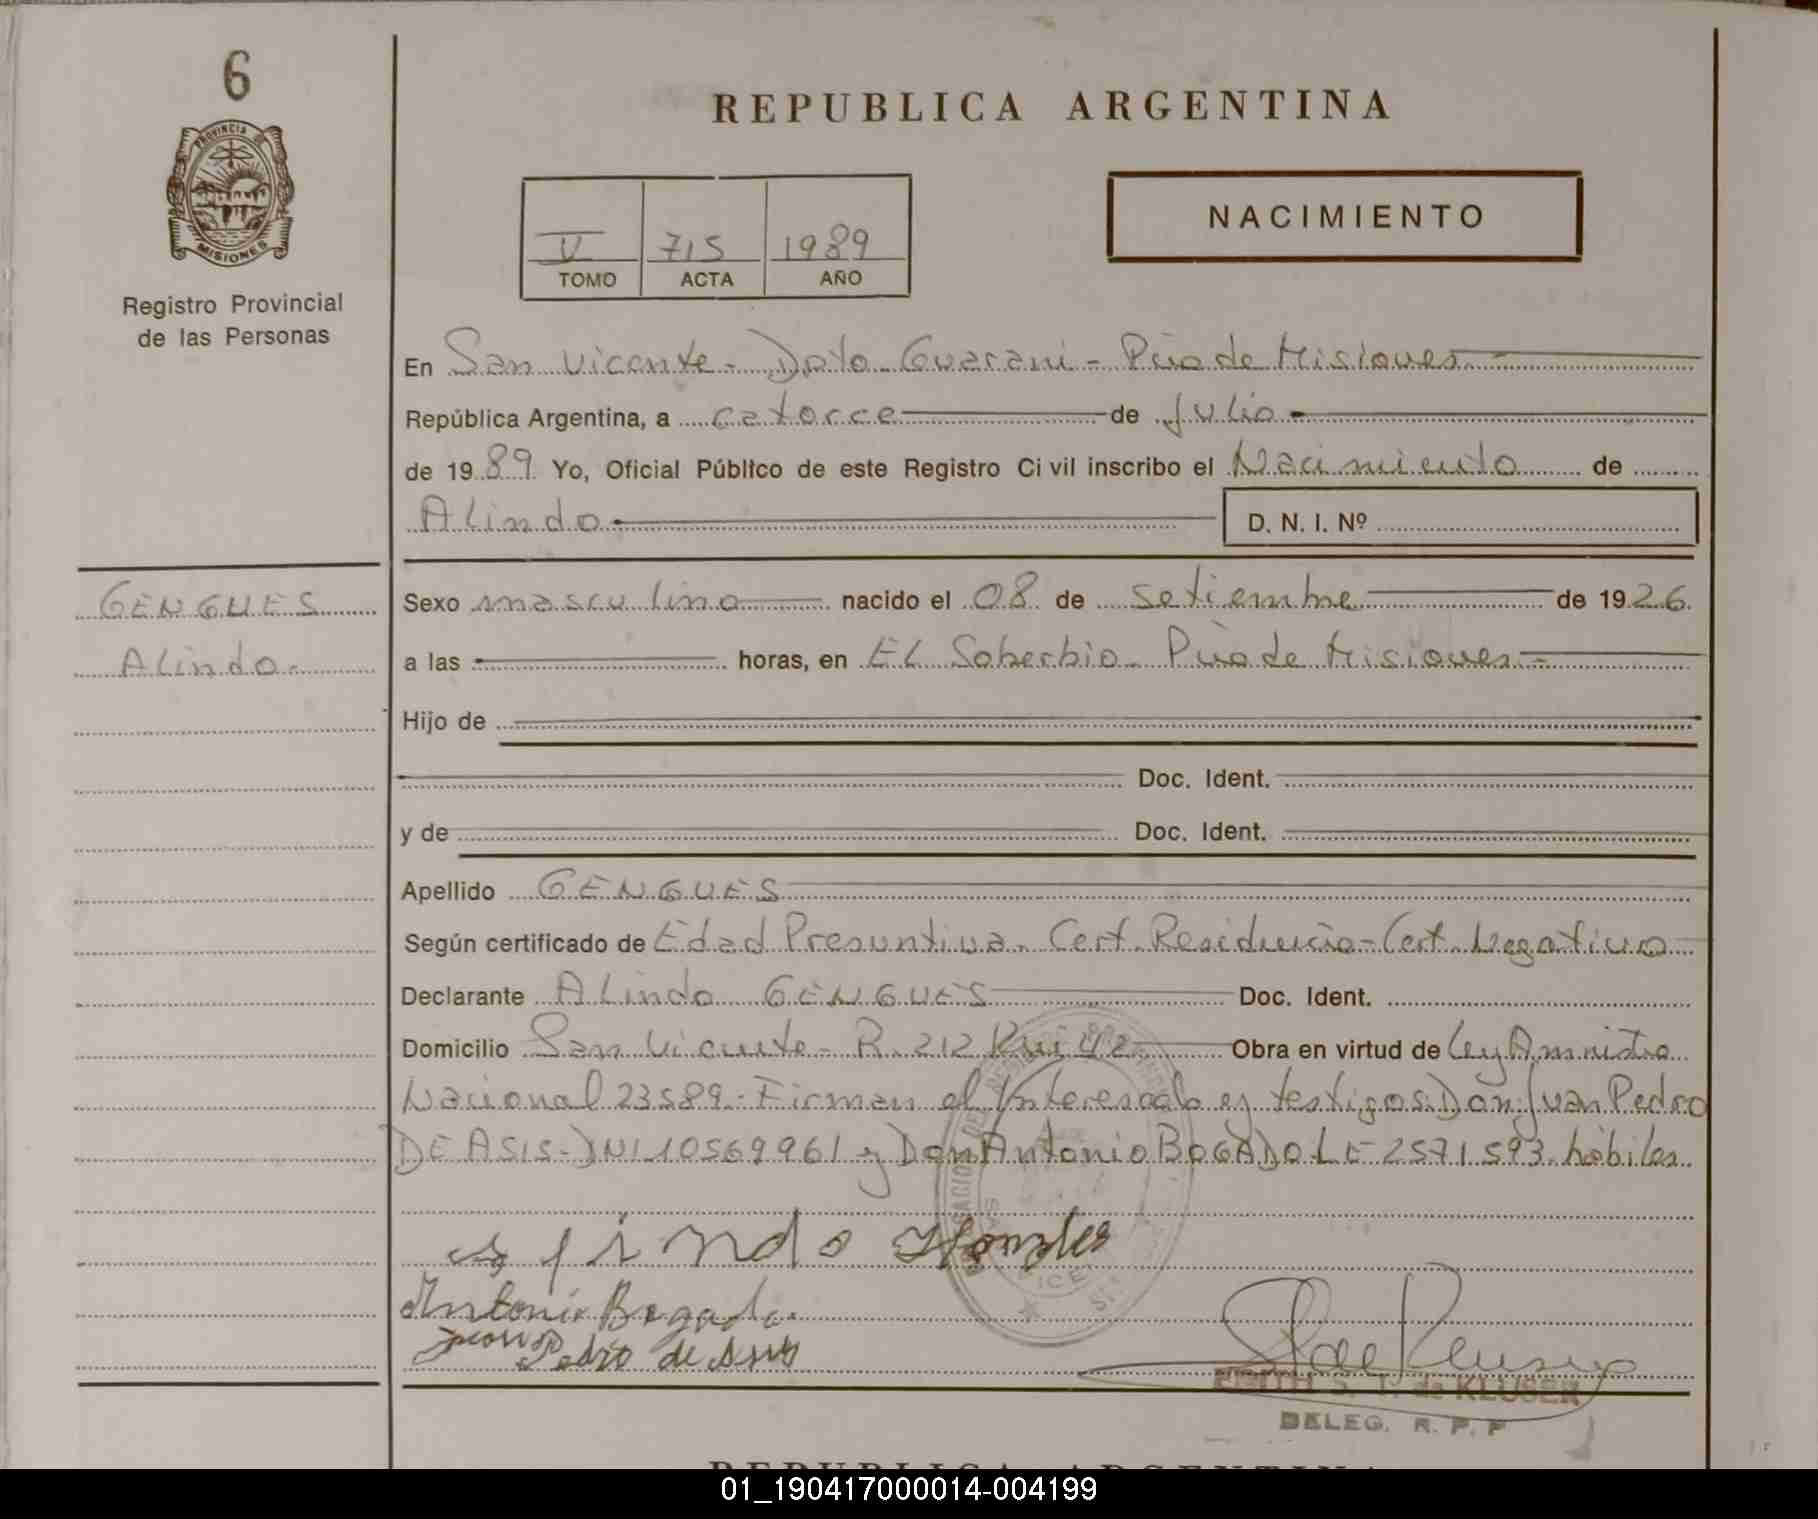 6
PROVINCIA DE
MISIONES
Registro Provincial
de las Personas
REPUBLICA ARGENTINA
NACIMIENTO
V 715 1989
TOMO ACTA AÑO
En San Vicente - Dpto. Guarani - Pcia de Misiones
República Argentina, a catorce de Julio
de 1989 Yo, Oficial Público de este Registro Civil inscribo el Nacimiento de
Alindo D. N. I. Nº
GENGUES
Alindo.
Sexo masculino nacido el 08 de Setiembre de 1926
a las horas, en EL Soberbio - Pcia de Misiones -
Hijo de
Doc. Ident.
y de Doc. Ident.
Apellido GENGUES
Según certificado de Edad Presuntiva. Cert. Residencia - Cert. Negativo
Declarante Alindo GENGUES Doc. Ident.
Domicilio San Vicente - R. 212 Km 42 Obra en virtud de Ley Amnistia
Nacional 23589.- Firman el Interesado y testigos: Don Juan Pedro
DE ASIS - DNI 10569961 y Don Antonio BOGADO LE 2571593. hábiles
Antonio Bogado.
Juan Pedro de Asis
EDITH S. T. de KLUSER
DELEG. R. P. P
REPUBLICA ARGENTINA
01_190417000014-004199